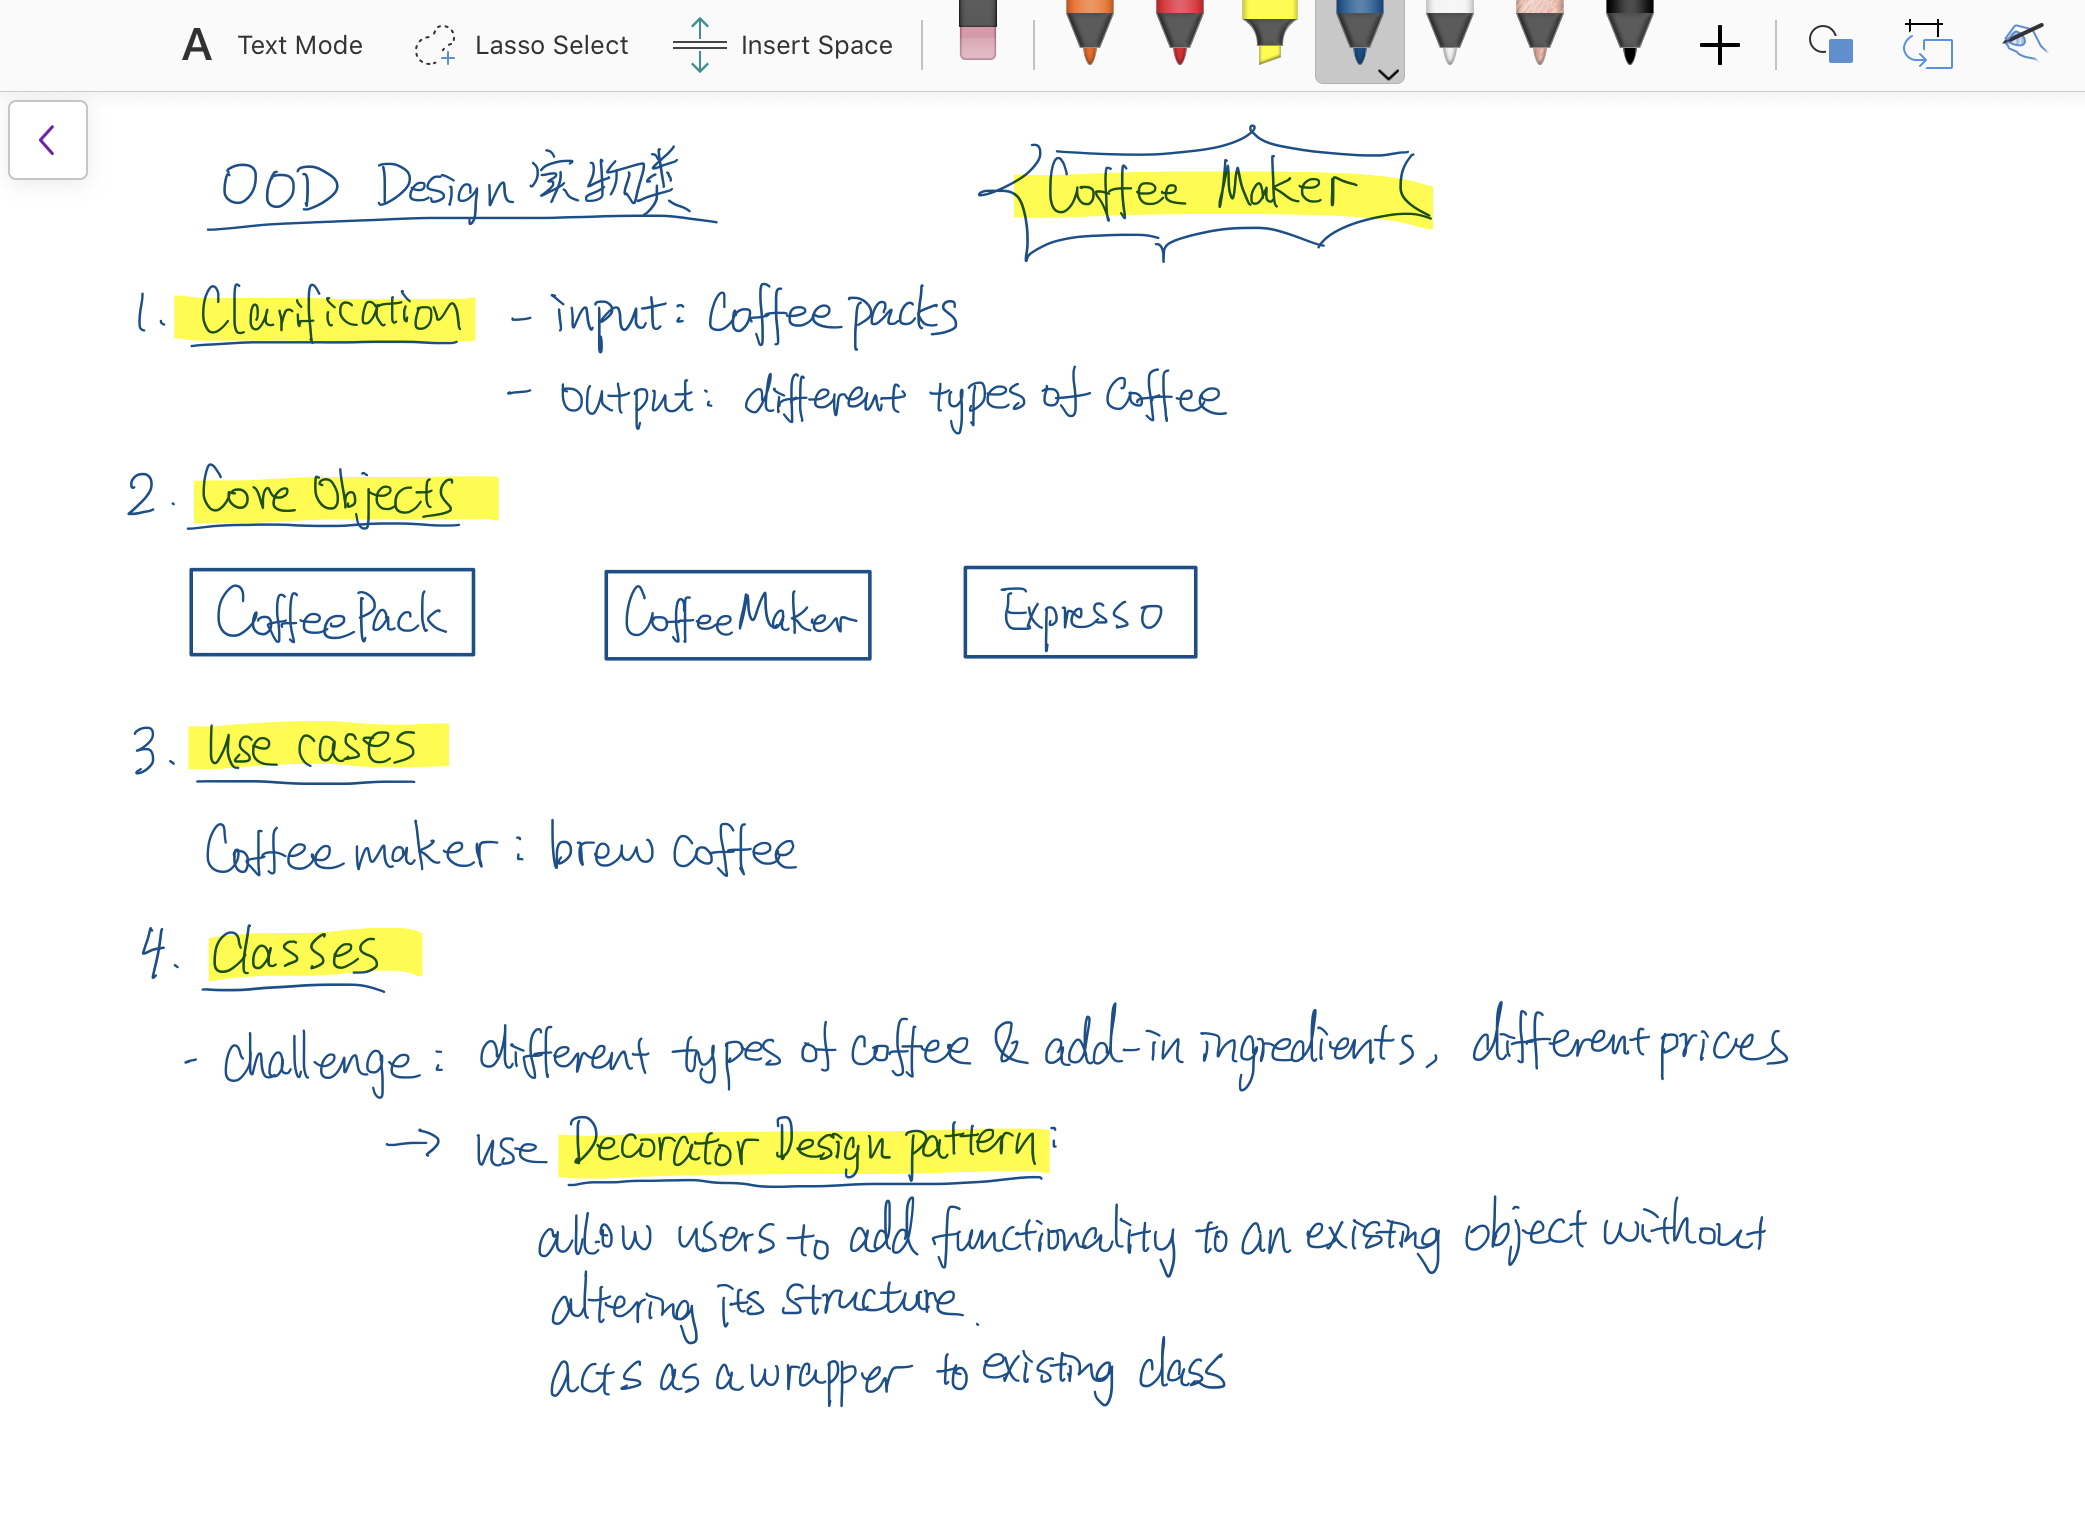 Text Mode Lasso Select Insert Space
OOD Design 实物类 Coffee Maker
1. Clarification - input: Coffee packs
- output: different types of coffee
2. Core Objects
CoffeePack CoffeeMaker Expresso
3. Use cases
Coffee maker: brew coffee
4. Classes
- challenge: different types of coffee & add-in ingredients, different prices
→ use Decorator Design pattern:
allow users to add functionality to an existing object without
altering its structure.
acts as a wrapper to existing class